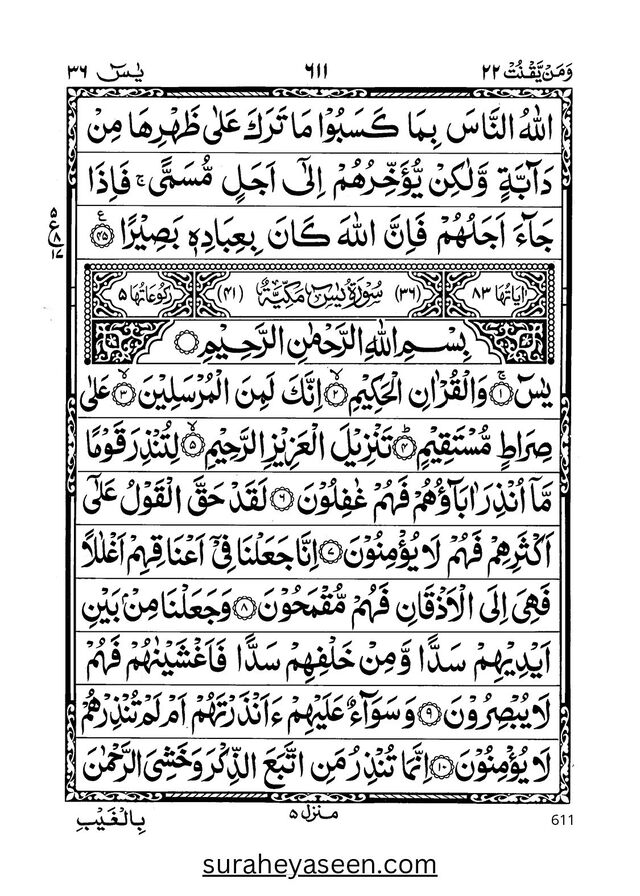 وَمَنْ یَّقْنُتْ ۲۲ ۶۱۱ یٰسٓ ۳۶
اللّٰهُ النَّاسَ بِمَا كَسَبُوْا مَا تَرَكَ عَلٰی ظَهْرِهَا مِنْ
دَآبَّةٍ وَّلٰكِنْ یُّؤَخِّرُهُمْ اِلٰۤی اَجَلٍ مُّسَمًّی ۚ فَاِذَا
جَآءَ اَجَلُهُمْ فَاِنَّ اللّٰهَ كَانَ بِعِبَادِهٖ بَصِیْرًا ﴿۴۵﴾
ع ۵ ۸ ۱۷
اٰیَاتُهَا ۸۳ (۳۶) سُوْرَةُ یٰسٓ مَكِّیَّةٌ (۴۱) رُكُوْعَاتُهَا ۵
بِسْمِ اللّٰهِ الرَّحْمٰنِ الرَّحِیْمِ
یٰسٓ ۚ﴿۱﴾ وَالْقُرْاٰنِ الْحَكِیْمِ ۙ﴿۲﴾ اِنَّكَ لَمِنَ الْمُرْسَلِیْنَ ۙ﴿۳﴾ عَلٰی
صِرَاطٍ مُّسْتَقِیْمٍ ؕ﴿۴﴾ تَنْزِیْلَ الْعَزِیْزِ الرَّحِیْمِ ۙ﴿۵﴾ لِتُنْذِرَ قَوْمًا
مَّاۤ اُنْذِرَ اٰبَآؤُهُمْ فَهُمْ غٰفِلُوْنَ ﴿۶﴾ لَقَدْ حَقَّ الْقَوْلُ عَلٰۤی
اَكْثَرِهِمْ فَهُمْ لَا یُؤْمِنُوْنَ ﴿۷﴾ اِنَّا جَعَلْنَا فِیْۤ اَعْنَاقِهِمْ اَغْلٰلًا
فَهِیَ اِلَی الْاَذْقَانِ فَهُمْ مُّقْمَحُوْنَ ﴿۸﴾ وَجَعَلْنَا مِنْۢ بَیْنِ
اَیْدِیْهِمْ سَدًّا وَّمِنْ خَلْفِهِمْ سَدًّا فَاَغْشَیْنٰهُمْ فَهُمْ
لَا یُبْصِرُوْنَ ﴿۹﴾ وَسَوَآءٌ عَلَیْهِمْ ءَاَنْذَرْتَهُمْ اَمْ لَمْ تُنْذِرْهُمْ
لَا یُؤْمِنُوْنَ ﴿۱۰﴾ اِنَّمَا تُنْذِرُ مَنِ اتَّبَعَ الذِّكْرَ وَخَشِیَ الرَّحْمٰنَ
بِالْغَیْبِ منزل ۵ 611
suraheyaseen.com